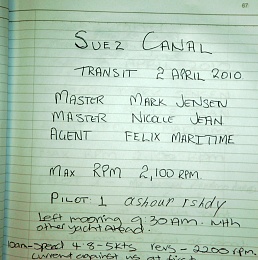 67
SUEZ CANAL
TRANSIT 2 APRIL 2010
MASTER MARK JENSEN
MASTER NICOLE JEAN
AGENT FELIX MARITIME
MAX RPM 2,100 RPM.
PILOT 1 ashour ishdy
Left mooring 9.30AM. With
other yacht ahead.
10am-speed 4.8-5kts revs - 2200 rpm.
current against us at first